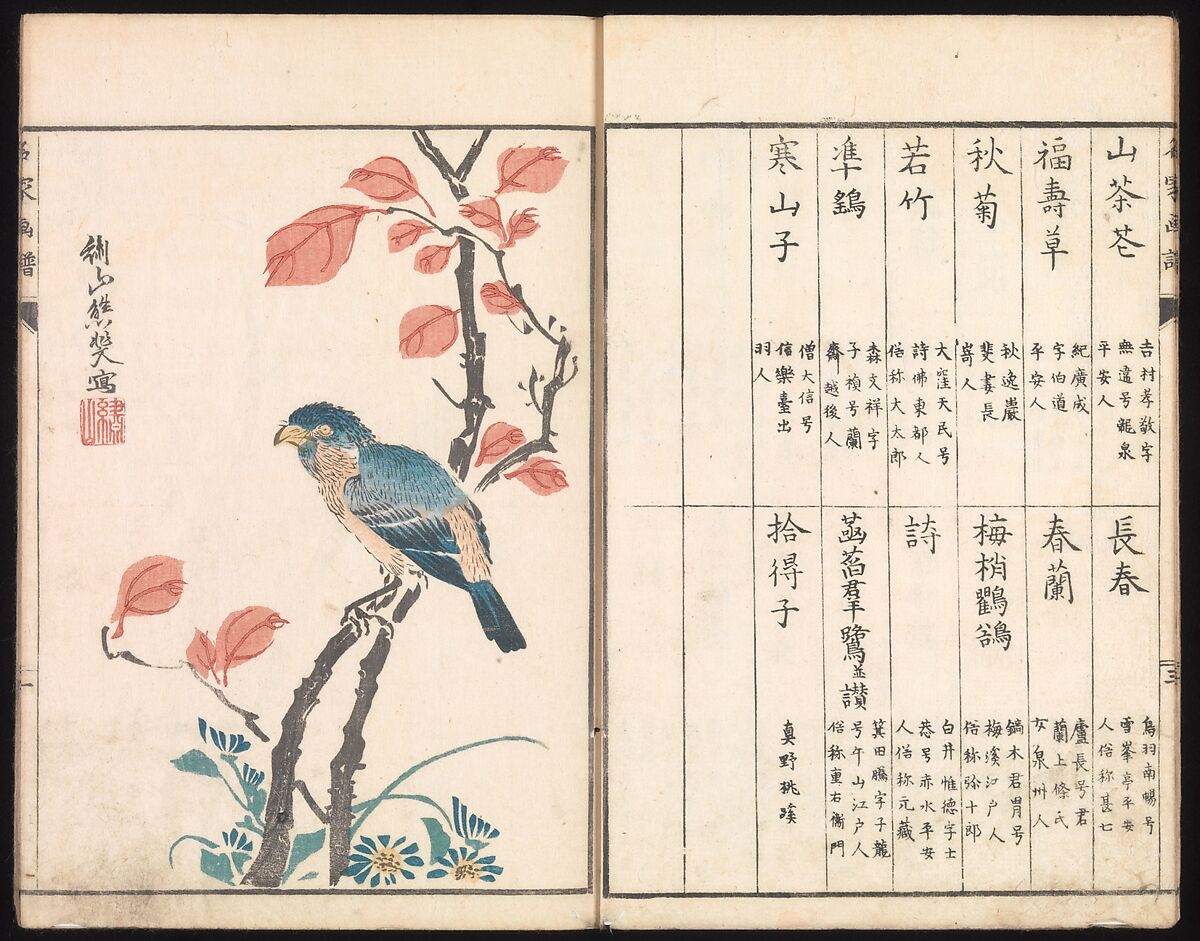 名家画譜
山茶花
吉村孝敬字
無違号龍泉
平安人
福壽草
紀廣成
字伯道
平安人
秋菊
秋逸巖
斐妻長
嵜人
若竹
大窪天民号
詩佛東都人
俗称大太郎
準鷄
森文祥字
子禎号蘭
齋越後人
寒山子
僧大信号
信樂臺出
羽人
長春
鳥羽南暢号
雪峯亭平安
人俗称甚七
春蘭
廬長号君
蘭上條氏
女泉州人
梅梢鸜鵒
鏑木君胃号
梅溪江戸人
俗称弥十郎
詩
白井惟德字士
恭号赤水平安
人俗称元藏
菡萏君羊鷺並讃
箕田驥字子龍
号午山江戸人
俗称重右衞門
拾得子
真野桃溪
三
名家画譜
繍山熊斐寫
繍山